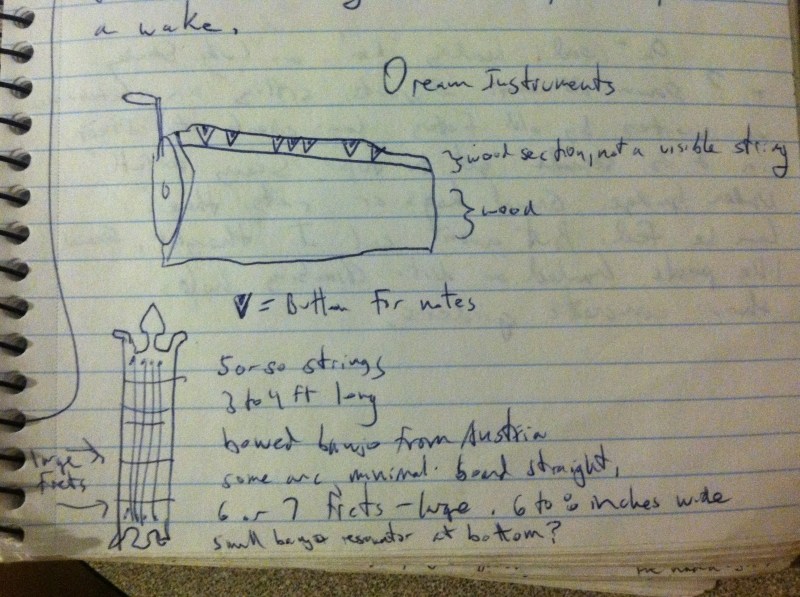 a wake.
Dream Instruments
}wood section, not a visible string
}wood
= Button for notes
5 or so strings
3 to 4 ft long
bowed banjo from Austria
some arc, minimal. board straight,
large frets
6 or 7 frets - large. 6 to 8 inches wide
small banjo resonator at bottom?